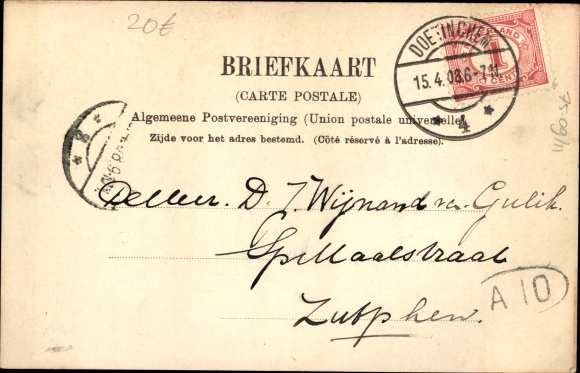 20€
DOETINCHEM
15.4.08.6-7N.
4
1 CENT
BRIEFKAART
(CARTE POSTALE)
Algemeene Postvereeniging (Union postale universelle)
Zijde voor het adres bestemd. (Côté réservé à l'adresse).
8
D. J. Wijnand v. Gulik.
Spittaalstraat
Zutphen.
A 10